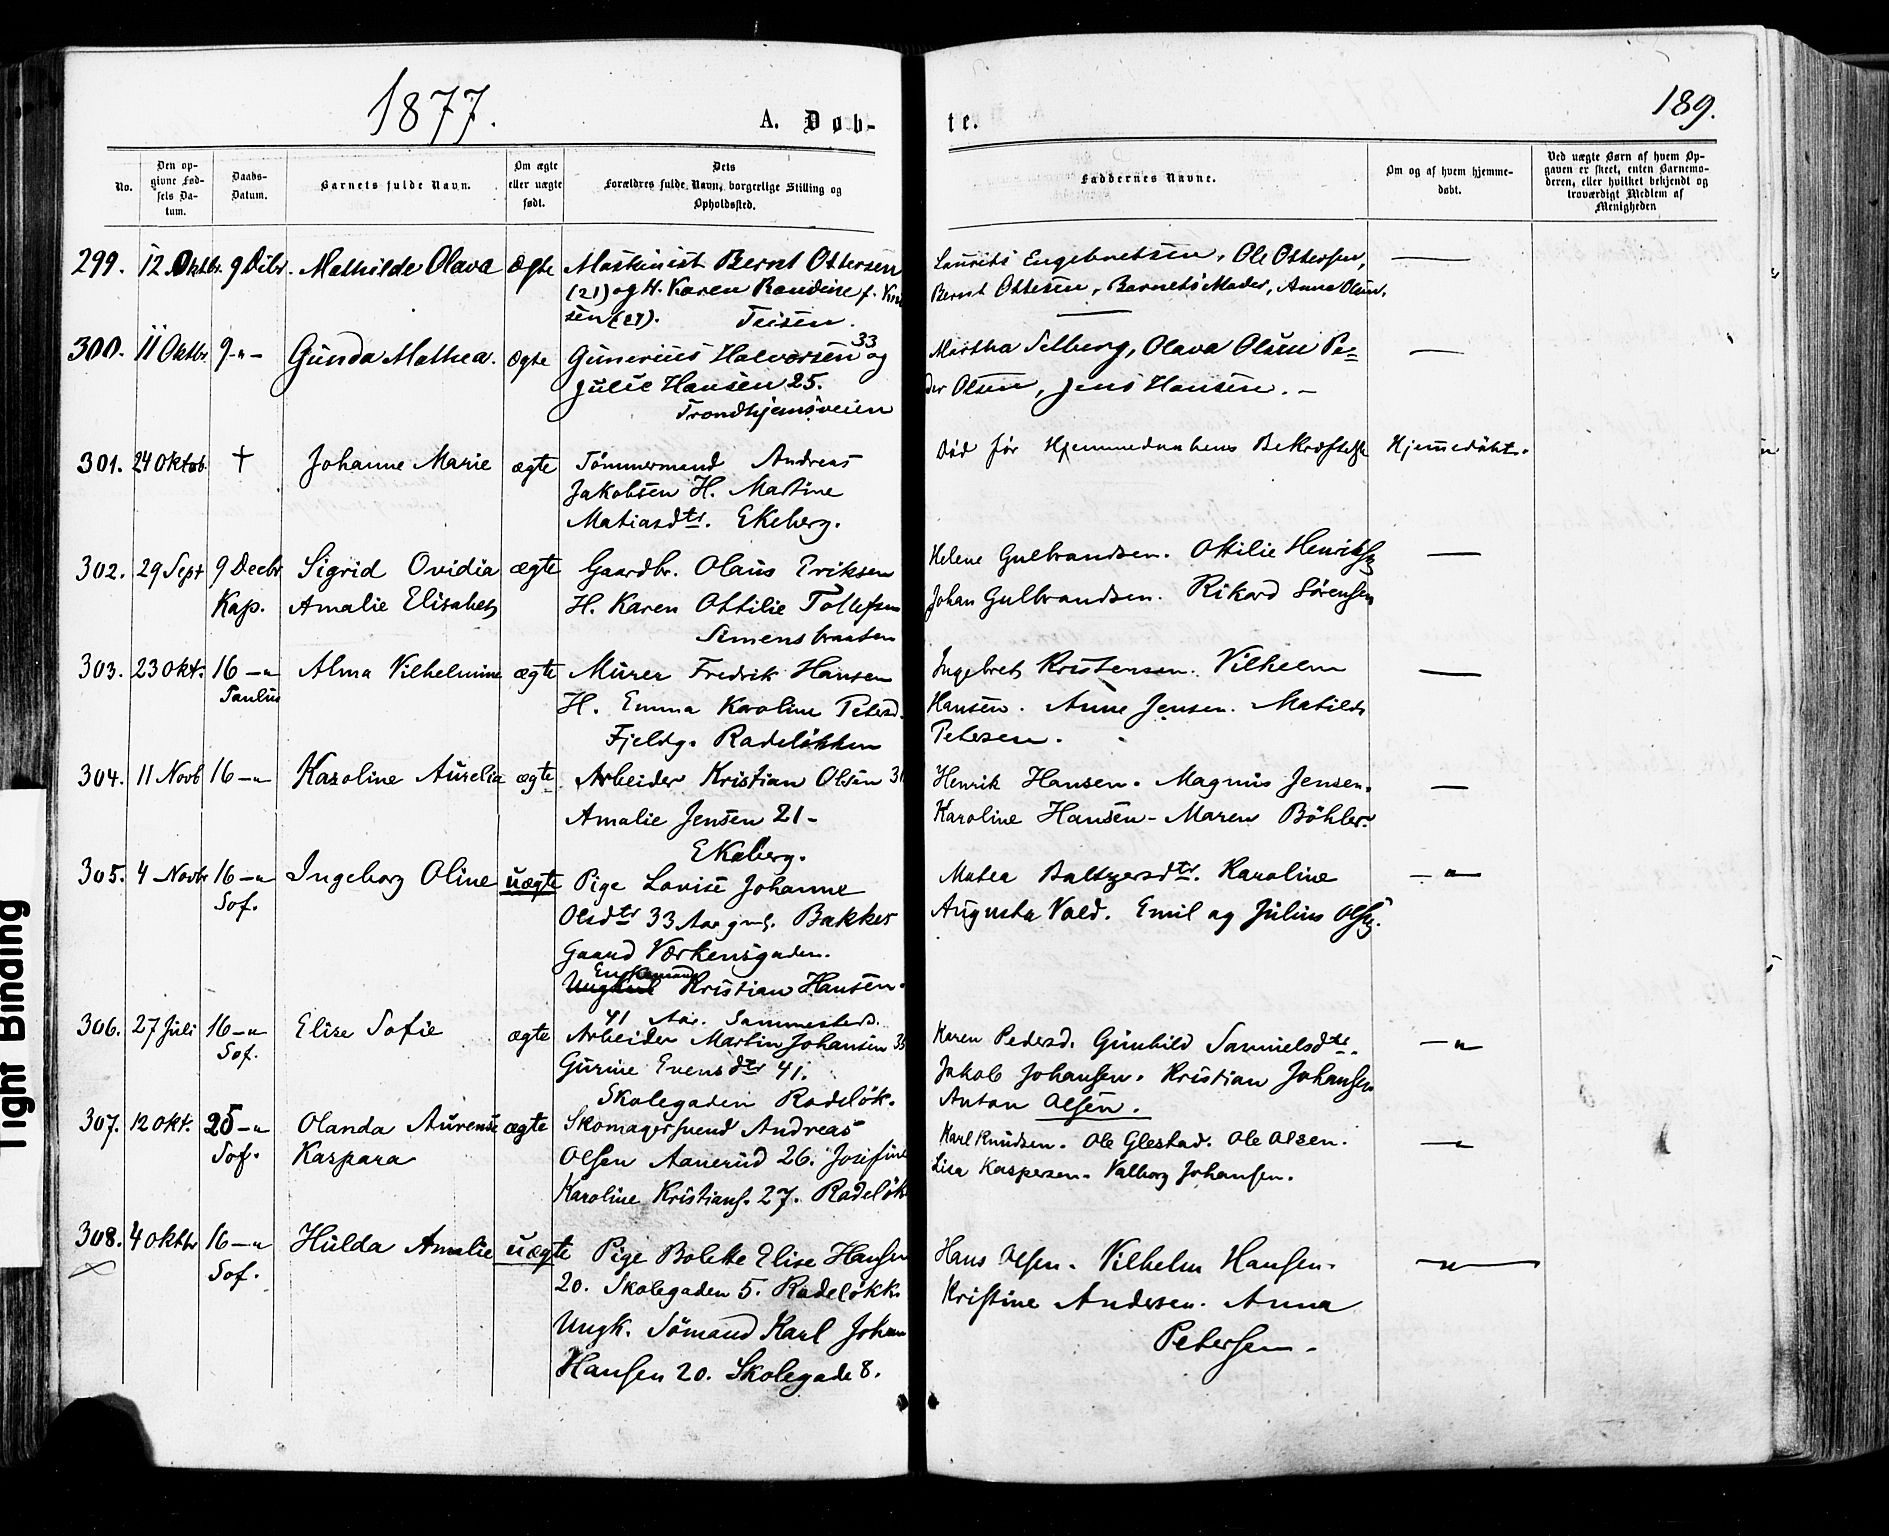 1877.
A. Døb-
te.
189.
No.
Den op-
givne Fød-
sels Da-
tum.
Daabs-
Datum.
Barnets fulde Navn.
Om ægte
eller uægte
født.
Dets
Forældres fulde Navn, borgerlige Stilling og
Opholdssted.
Faddernes Navne.
Om og af hvem hjemme-
døbt.
Ved uægte Børn af hvem Op-
gaven er skeet, enten Barnemo-
deren, eller hvilket bekjendt og
troværdigt Medlem af
Menigheden
299. 12 Oktbr. 9 Dcbr. Mathilde Olava ægte Maskinist Bernt Ottersen
(21) og H. Karen Randine f.
sen (27). Teisen.
Laurits Engebretsen, Ole Ottersen, —
Bernt Ottesen, Barnets Moder, Anna Olsen.
300. 11 Oktbr. 9 -"- Gunda Mathea. ægte Gunerius Halvorsen 33 og
Julie Hansen 25.
Trondhjemsveien
Martha Selberg, Olava Olsen Pe= —
der Olsen, Jens Hansen. -
301. 24 Oktob. † Johanne Marie ægte Tømmermand Andreas
Jakobsen H. Martine
Matiasdtr. Ekeberg.
Død før Hjemmedaabens Bekræftelse Hjemmedøbt.
302. 29 Sept 9 Decbr Sigrid Ovidia ægte Gaardbr. Olaus Eriksen
Kap. Amalie Elisabet H. Karen Ottilie Tollefsen
Simensbraaten
Helene Gulbrandsen. Ottilie Henriksen —
Johan Gulbrandsen. Rikard Sørensen
303. 23 Okt. 16 -"- Alma Vilhelmine ægte Murer Fredrik Hansen
Paulus H. Emma Karoline Petersd.
Fjeldg. Rodeløkken
Ingebret Kristensen. Vilhelm —
Hansen. Anne Jensen. Matilde
Petersen.
304. 11 Novb 16 -"- Karoline Aurelia ægte Arbeider Kristian Olsen 31
Amalie Jensen 21 -
Ekeberg.
Henrik Hansen. Magnus Jensen. —
Karoline Hansen - Maren Bøhler.
305. 4 Novbr 16 -"- Ingeborg Oline uægte Pige Lovise Johanne
Sof. Olsdtr 33 Aar gml. Bakker
Gaard Værkensgaden.
Enkemand
Ungkarl Kristian Hansen.
41 Aar. Sammesteds.
Matea Baltzersdtr. Karoline -"-
Augusta Vold. Emil og Julius Olsen.
306. 27 Juli 16 -"- Elise Sofie ægte Arbeider Martin Johansen 35
Sof. Gurine Evensdtr 41.
Skolegaden Rodeløk.
Karen Pedersd. Gunhild Samuelsdtr. -"-
Jakob Johansen. Kristian Johansen
Anton Olsen.
307. 12 Okt. 25 -"- Olanda Aurense ægte Skomagersvend Andreas
Sof. Kaspara Olsen Aanerud 26. Josefine
Karoline Kristians. 27. Rodeløk
Karl Knudsen. Ole Glestad. Ole Olsen. -"-
Lisa Kaspersen. Valborg Johansen.
308. 4 Oktbr 16 -"- Hulda Amalie uægte Pige Bolette Elise Hansen
Sof. 20. Skolegaden 5. Rodeløkk.
Ungk. Sømand Karl Johan
Hansen 20. Skolegade 8.
Hans Olsen. Vilhelm Hansen. -"-
Kristine Andersen. Anna
Petersen.
Tight Binding